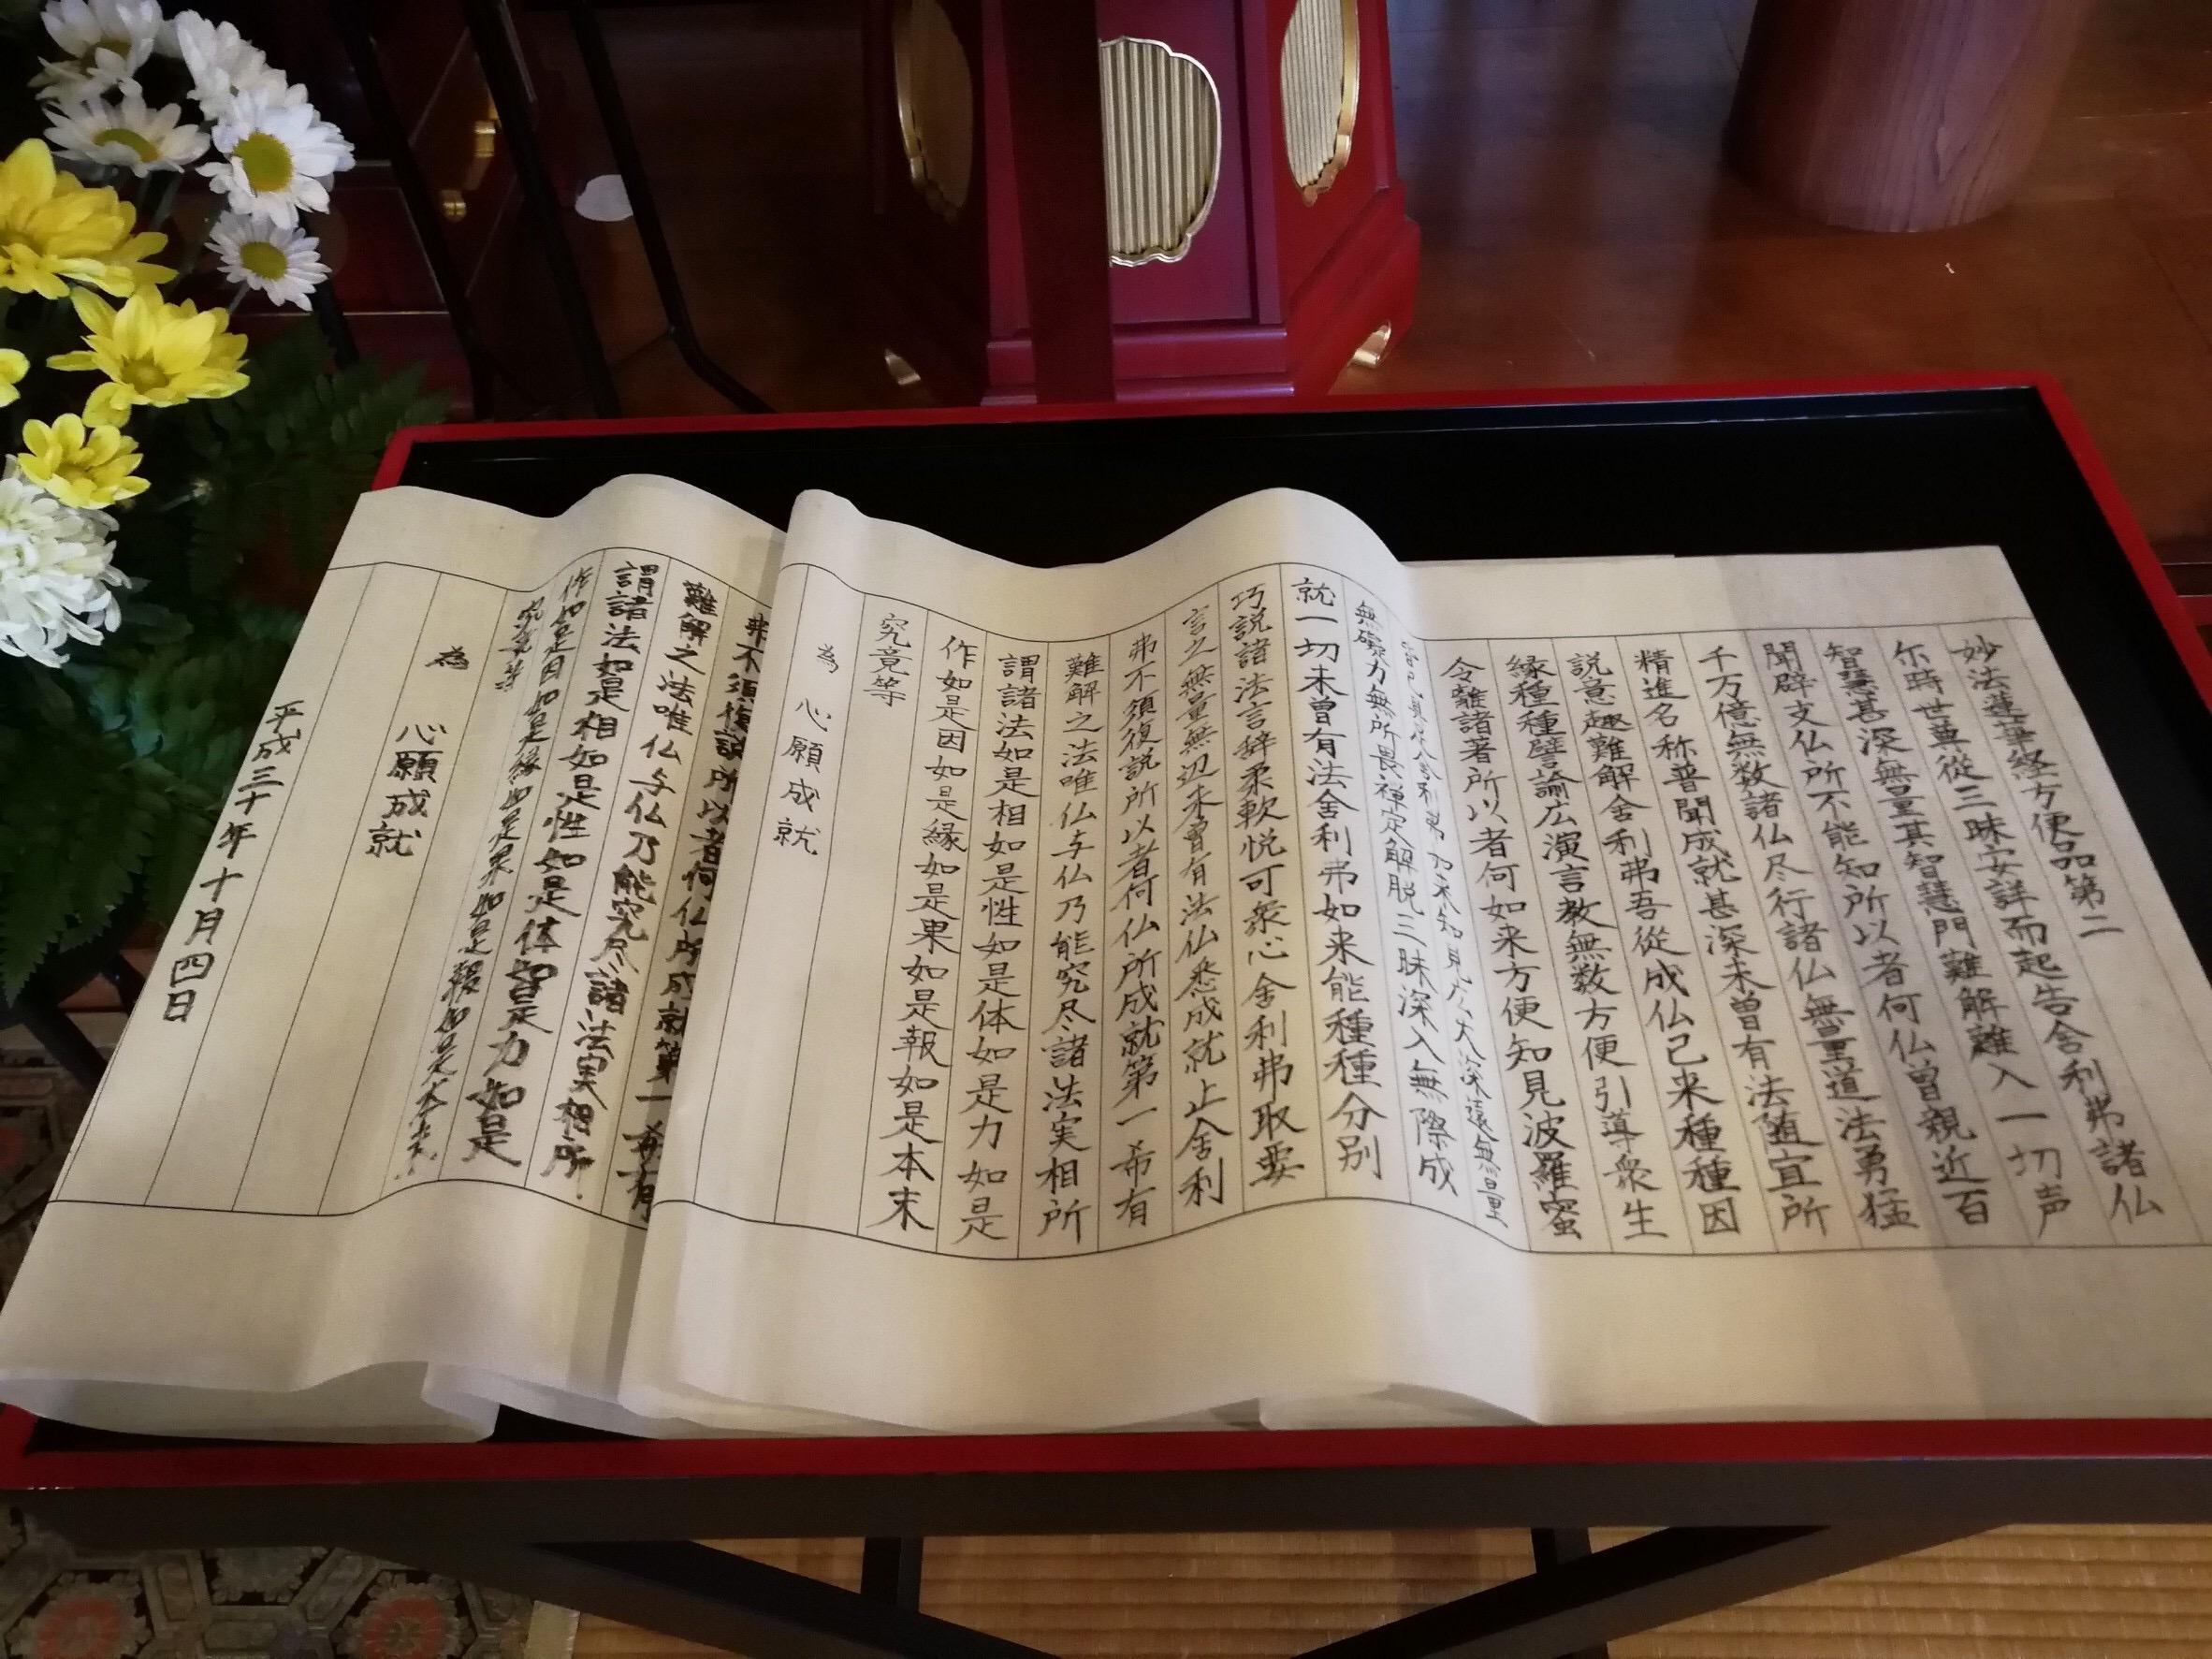 妙法蓮華経方便品第二
尓時世尊從三昧安詳而起告舎利弗諸仏
智慧甚深無量其智慧門難解難入一切声
聞辟支仏所不能知所以者何仏曽親近百
千万億無数諸仏尽行諸仏無量道法勇猛
精進名称普聞成就甚深未曽有法随宜所
説意趣難解舎利弗吾從成仏已来種種因
縁種種譬諭広演言教無数方便引導衆生
令離諸著所以者何如来方便知見波羅蜜
無礙力無所畏禅定解脱三昧深入無際成
就一切未曽有法舎利弗如来能種種分別
巧説諸法言辞柔軟悦可衆心舎利弗取要
言之無量無辺未曽有法仏悉成就止舎利
弗不須復説所以者何仏所成就第一希有
難解之法唯仏与仏乃能究尽諸法実相所
謂諸法如是相如是性如是体如是力如是
作如是因如是縁如是果如是報如是本末
究竟等
為 心願成就
弗不須復説所以者何仏所成就第一希有
難解之法唯仏与仏乃能究尽諸法実相所
謂諸法如是相如是性如是体如是力如是
作如是因如是縁如是果如是報如是本末
究竟等
為 心願成就
平成三十年十月四日